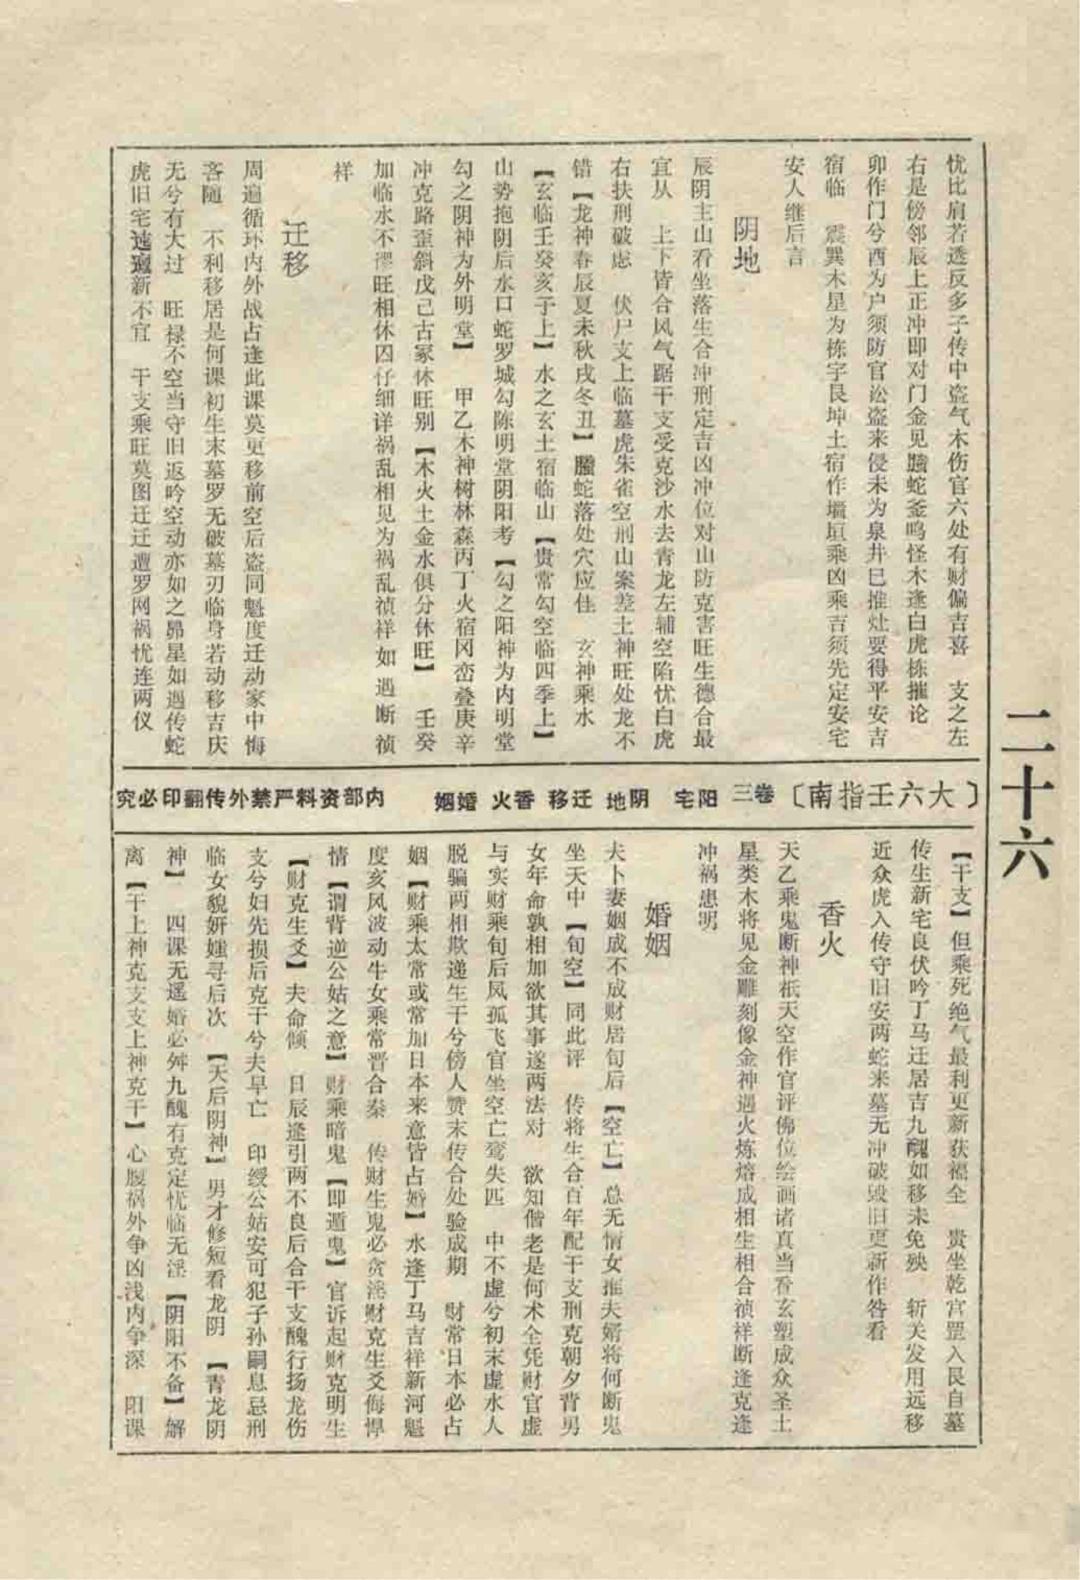 忧比肩若透反多子传中盗气木伤官六处有财偏吉喜　支之左
右是傍邻辰上正冲即对门金见螣蛇釜鸣怪木逢白虎栋摧论
卯作门兮酉为户须防官讼盗来侵未为泉井巳推灶要得平安吉
宿临　震巽木星为栋宇艮坤土宿作墙垣乘凶乘吉须先定安宅
安人继后言
阴地
辰阴主山看坐落生合冲刑定吉凶冲位对山防克害旺生德合最
宜从　上下皆合风气踞干支受克沙水去青龙左辅空陷忧白虎
右扶刑破虑　伏尸支上临墓虎朱雀空刑山案差土神旺处龙不
错【龙神春辰夏未秋戌冬丑】螣蛇落处穴应佳　玄神乘水
【玄临壬癸亥子上】水之玄土宿临山【贵常勾空临四季上】
山势抱阴后水口蛇罗城勾陈明堂阴阳考【勾之阳神为内明堂
勾之阴神为外明堂】　甲乙木神树林森丙丁火宿冈峦叠庚辛
冲克路歪斜戊己古冢休旺别【木火土金水俱分休旺】　壬癸
加临水不谬旺相休囚仔细详祸乱相见为祸乱祯祥如遇断祯
祥
迁移
周遍循环内外战占逢此课莫更移前空后盗同魁度迁动家中悔
吝随　不利移居是何课初生末墓罗无破墓刃临身若动移吉庆
无兮有大过　旺禄不空当守旧返吟空动亦如之昴星如遇传蛇
虎旧宅速迁新不宜　干支乘旺莫图迁迁遭罗网祸忧连两仪
二十六
〔大六壬指南〕卷三　阳宅　阴地　迁移　香火　婚姻　内部资料严禁外传翻印必究
【干支】但乘死绝气最利更新获福全　贵坐乾宫罡入艮自墓
传生新宅良伏吟丁马迁居吉九醜如移未免殃　斩关发用远移
近众虎入传守旧安两蛇来墓无冲破毁旧更新作咎看
香火
天乙乘鬼断神祇天空作官评佛位绘画诸真当看玄塑成众圣土
星类木将见金雕刻像金神遇火炼熔成相生相合祯祥断逢克逢
冲祸患明
婚姻
夫卜妻姻成不成财居旬后【空亡】总无情女推夫婿将何断鬼
坐天中【旬空】同此评　传将生合百年配干支刑克朝夕背男
女年命孰相加欲其事遂两法对　欲知偕老是何术全凭财官虚
与实财乘旬后凤孤飞官坐空亡鸾失匹　中不虚兮初末虚水人
脱骗两相欺递生干兮傍人赞末传合处验成期　财常日本必占
姻【财乘太常或常加日本来意皆占婚】水逢丁马吉祥新河魁
度亥风波动牛女乘常晋合秦　传财生鬼必贪淫财克生爻侮悍
情【谓背逆公姑之意】财乘暗鬼【即遁鬼】官诉起财克明生
【财克生爻】夫命倾　日辰逢引两不良后合干支醜行扬龙伤
支兮妇先损后克干兮夫早亡　印绶公姑安可犯子孙嗣息忌刑
临女貌妍媸寻后次　【天后阴神】男才修短看龙阴　【青龙阴
神】　四课无遥婚必舛九醜有克定忧临无淫【阴阳不备】解
离【干上神克支支上神克干】心腹祸外争凶浅内争深　阳课